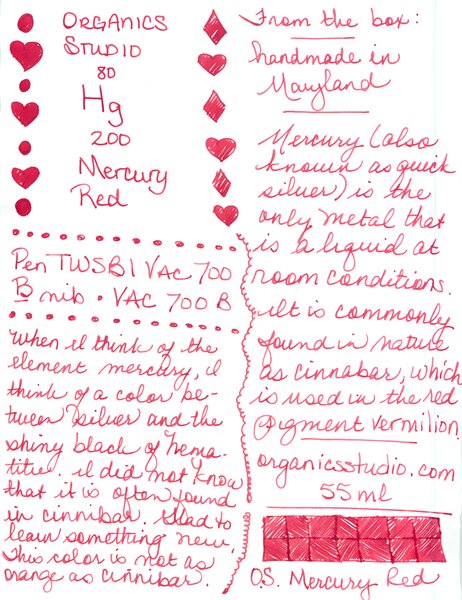 ORGANICS
STUDIO
80
Hg
200
Mercury
Red
Pen TWSBI VAC 700
B nib · VAC 700 B
When I think of the
element mercury, I
think of a color be-
tween silver and the
shiny black of hema-
titie. I did not know
that it is often found
in cinnibar. Glad to
learn something new.
This color is not as
orange as cinnibar.
From the box:
handmade in
Maryland
Mercury (also
known as quick
silver) is the
only metal that
is a liquid at
room conditions.
It is commonly
found in nature
as cinnabar, which
is used in the red
pigment vermilion.
organicsstudio.com
55 ml
O.S. Mercury Red